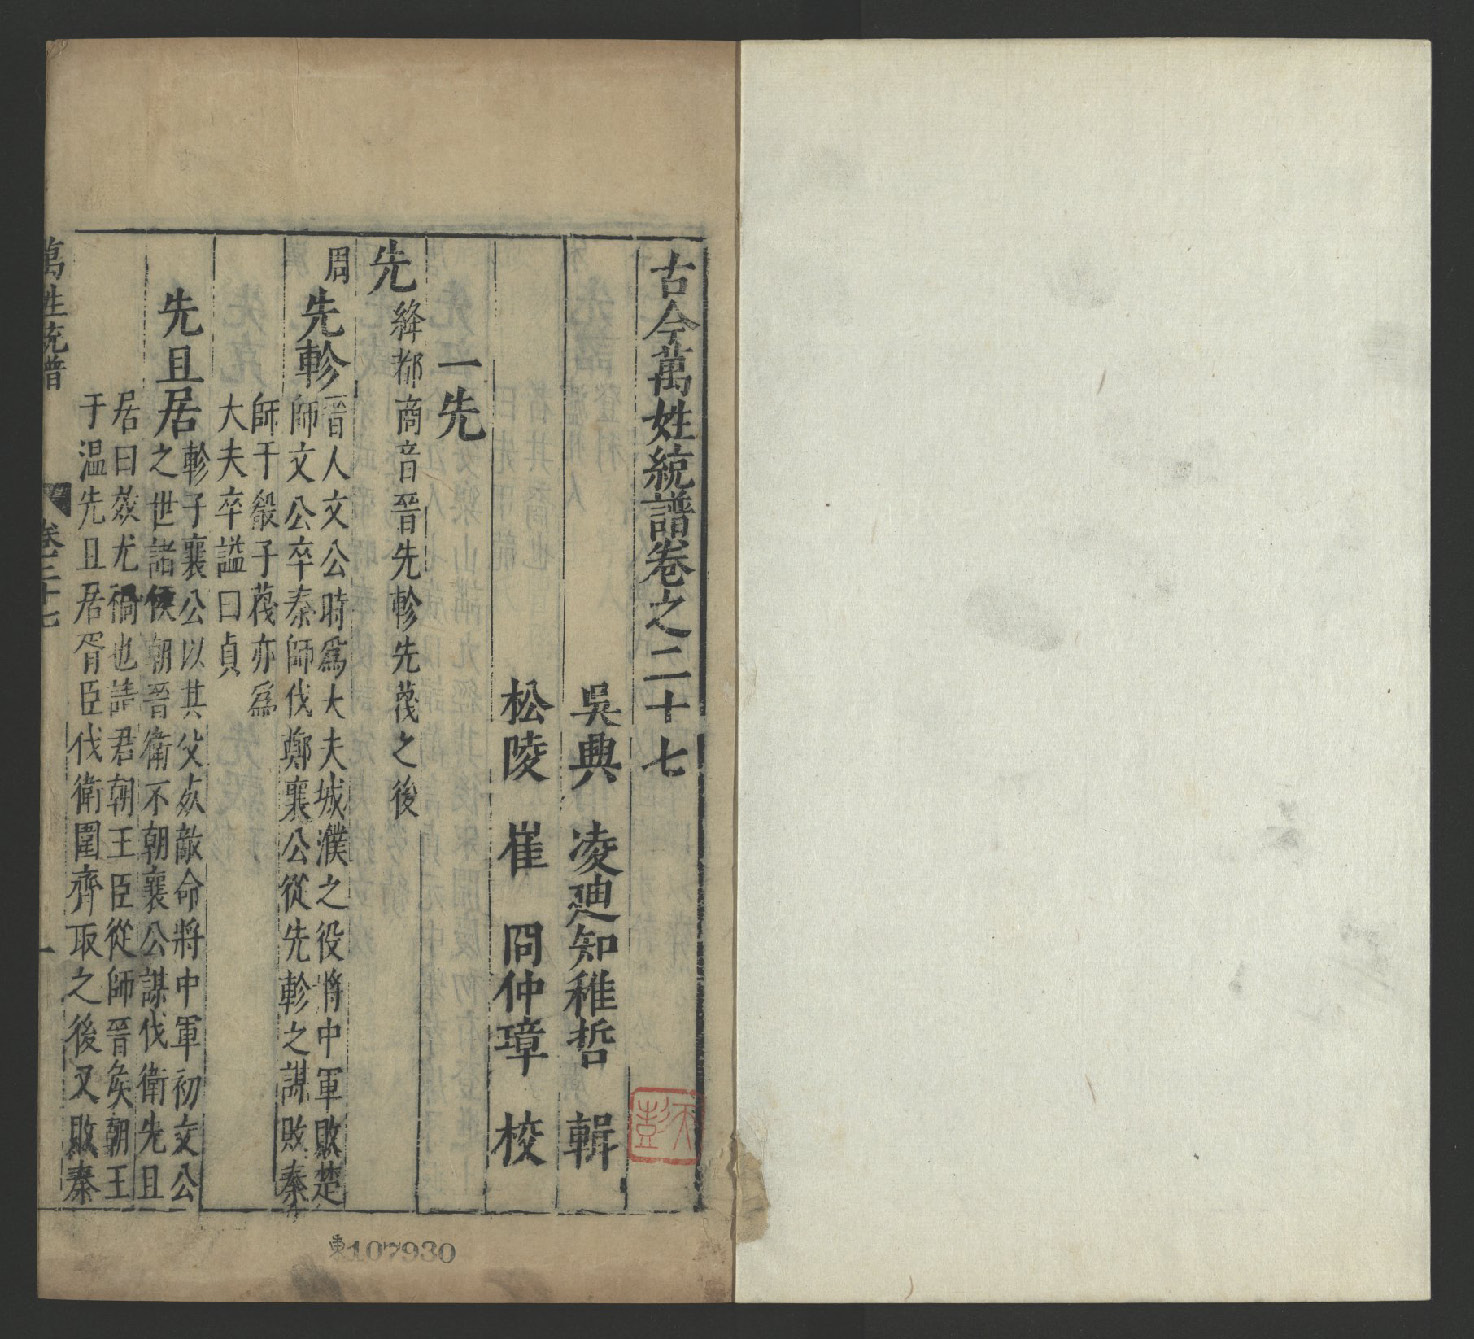 古今萬姓統譜卷之二十七
吳興 凌廸知稚哲 輯
松陵 崔 冏仲璋 校
一先
先 絳郡商音晉先軫先茷之後
周 先軫 晉人文公時爲大夫城濮之役將中軍敗楚
師文公卒秦師伐鄭襄公從先軫之謀敗秦
師于殽子茷亦爲
大夫卒謚曰貞
先且居 軫子襄公以其父死敵命將中軍初文公
之世諸侯朝晉衛不朝襄公謀伐衛先且
居曰效尤禍也請君朝王臣從師晉矦朝王
于温先且居胥臣伐衛圍齊取之後又敗秦
萬姓統譜 卷二十七 一
東107930